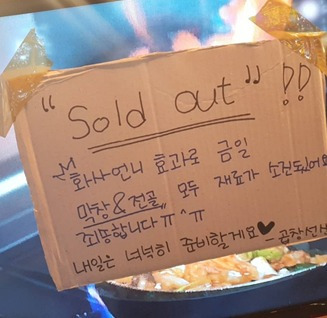 "Sold out" !!
화사언니 효과로 금일
막창&전골 모두 재료가 소진되었어요
죄송합니다 ㅠ^ㅠ
내일은 넉넉히 준비할게요♥